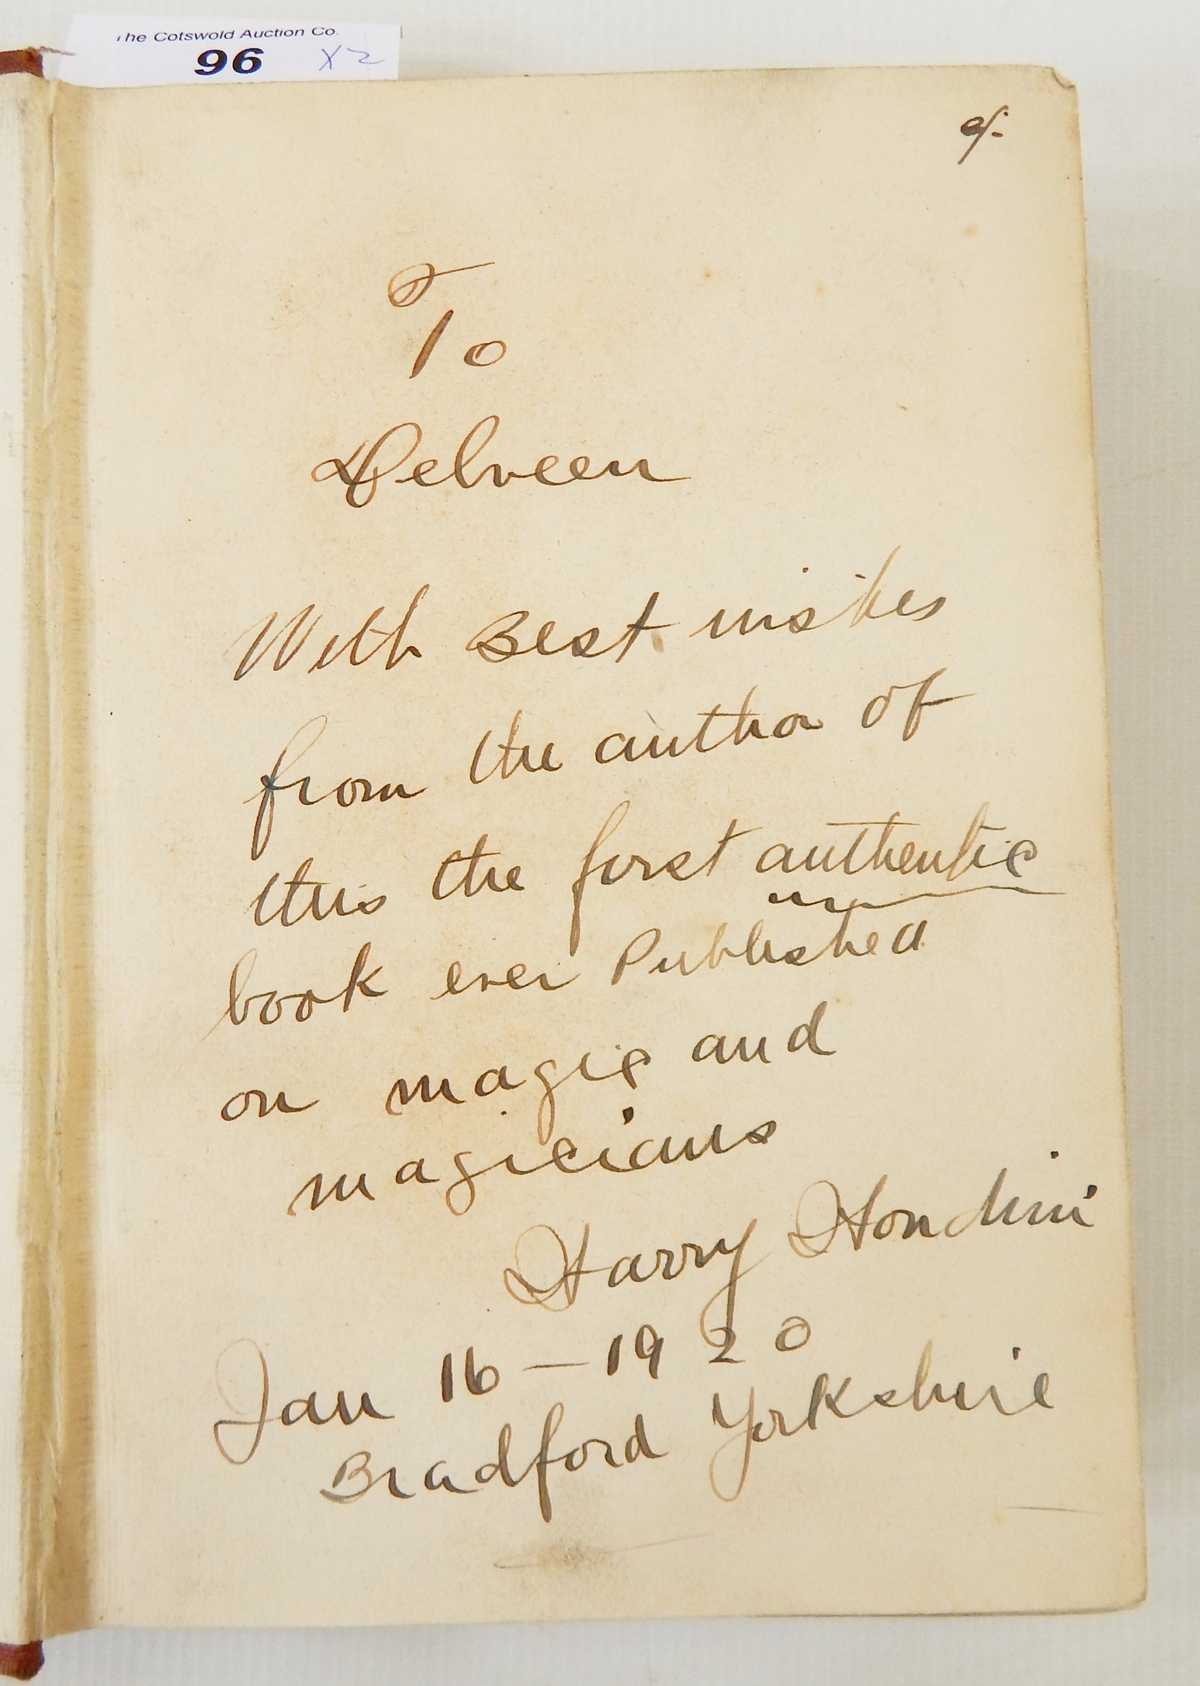 The Cotswold Auction Co.
96 X2
To
Delveen
With Best wishes
from the author of
this the first authentic
book ever Published
on magic and
magicians
Harry Houdini
Jan 16 — 1920
Bradford Yorkshire